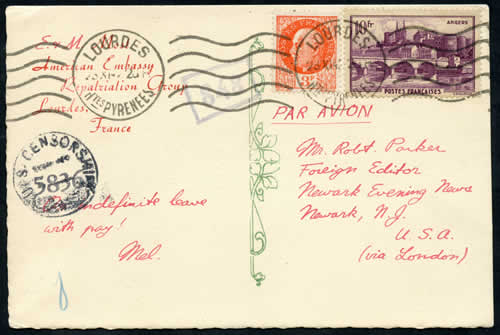 E. & M.
American Embassy
Repatriation Group
Lourdes
France
LOURDES
HTES PYRENEES
U.S. CENSORSHIP
5836
indefinite leave
with pay!
Mel.
3F
LOURDES
10fr
ANGERS
POSTES FRANÇAISES
PAR AVION
Mr. Robt. Parker
Foreign Editor
Newark Evening News
Newark, N.J.
U.S.A.
(via London)